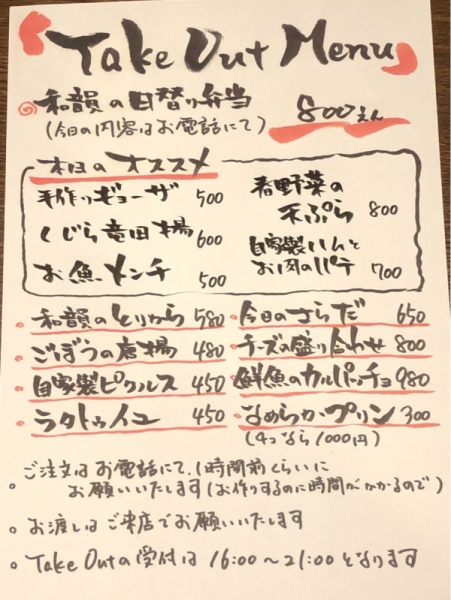 「Take Out Menu」
和韻の日替り弁当 800えん
(今日の内容はお電話にて)
本日のオススメ
手作りギョーザ 500
くじら竜田揚 600
お魚メンチ 500
春野菜の天ぷら 800
自家製ハムとお肉のパテ 700
和韻のとりから 580
ごぼうの唐揚 480
自家製ピクルス 450
ラタトゥイユ 450
今日のさらだ 650
チーズの盛り合わせ 800
鮮魚のカルパッチョ 980
なめらかプリン 300
(4つなら1000円)
。ご注文はお電話にて、1時間前くらいに
お願いいたします(お作りするのに時間がかかるので)
。お渡しはご来店でお願いいたします
。Take Outの受付は 16:00〜21:00となります